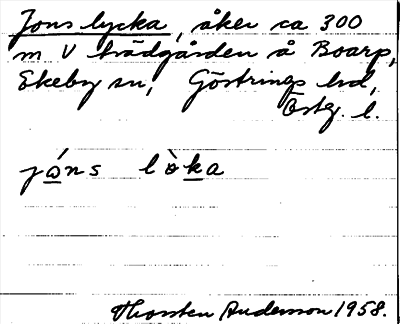 Jons lycka, åker ca 300
m V trädgården å Boarp,
Ekeby sn, Göstrings hd,
Östg. l.
jó̲ns lòk̲a
Thorsten Andersson 1958.